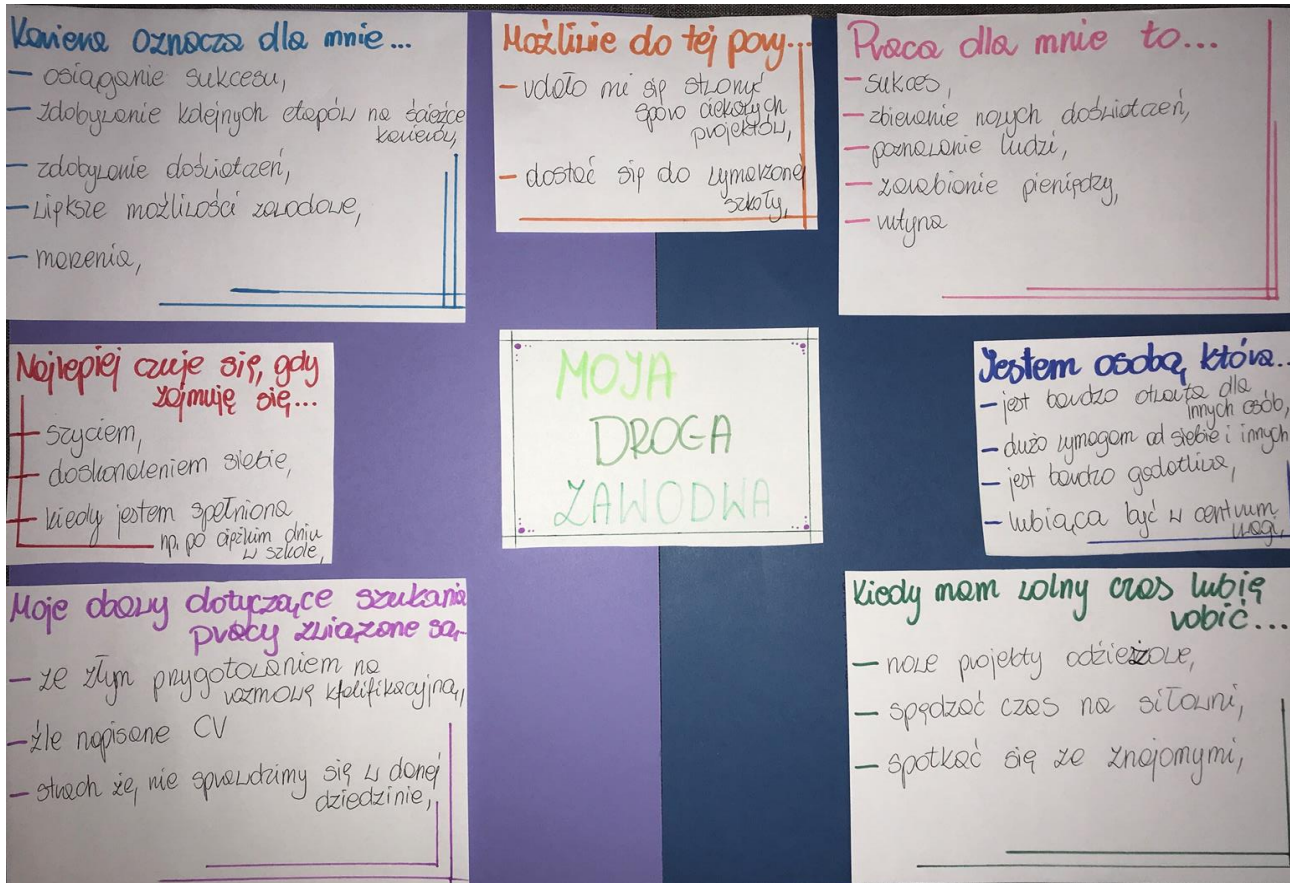 Kariera oznacza dla mnie...
– osiąganie sukcesu,
– zdobywanie kolejnych etapów na ścieżce
kariery,
– zdobywanie doświatczeń,
– większe możliwości zawodowe,
– marzenia,
Możliwie do tej pory...
– udało mi się stworzyć
sporo ciekawych
projektów,
– dostać się do wymarzonej
szkoły,
Praca dla mnie to...
– sukces,
– zbieranie nowych doświatczeń,
– poznawanie ludzi,
– zarabianie pieniędzy,
– rutyna
Najlepiej czuje się, gdy
zajmuję się...
– szyciem,
– doskonaleniem siebie,
– kiedy jestem spełniona
np. po ciężkim dniu
w szkole,
MOJA
DROGA
ZAWODWA
Jestem osobą, która...
– jest bardzo otwarta dla
innych osób,
– dużo wymagam od siebie i innych
– jest bardzo gadatliwa,
– lubiąca być w centrum
uwagi,
Moje obawy dotyczące szukania
pracy związane są...
– ze złym przygotowaniem na
rozmowę kfalifikacyjną,
– źle napisane CV
– strach że, nie sprawdzimy się w danej
dziedzinie,
Kiedy mam wolny czas lubię
robić...
– nowe projekty odzieżowe,
– spędzać czas na siłowni,
– spotkać się ze znajomymi,